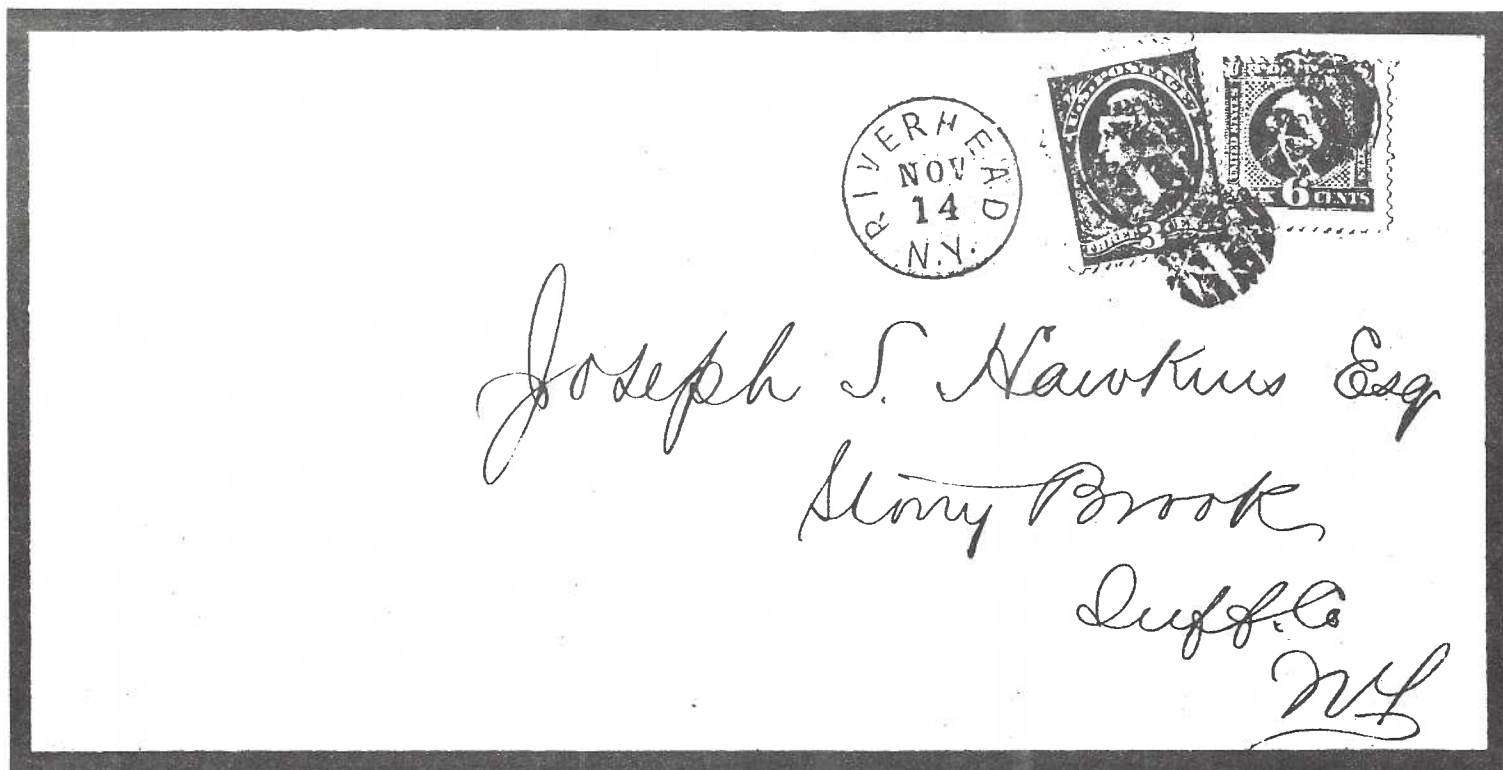 RIVERHEAD
NOV
14
N.Y.
U.S. POSTAGE
3
UNITED STATES
6 CENTS
Joseph S. Hawkins Esq
Stony Brook
Suff. Co
NY